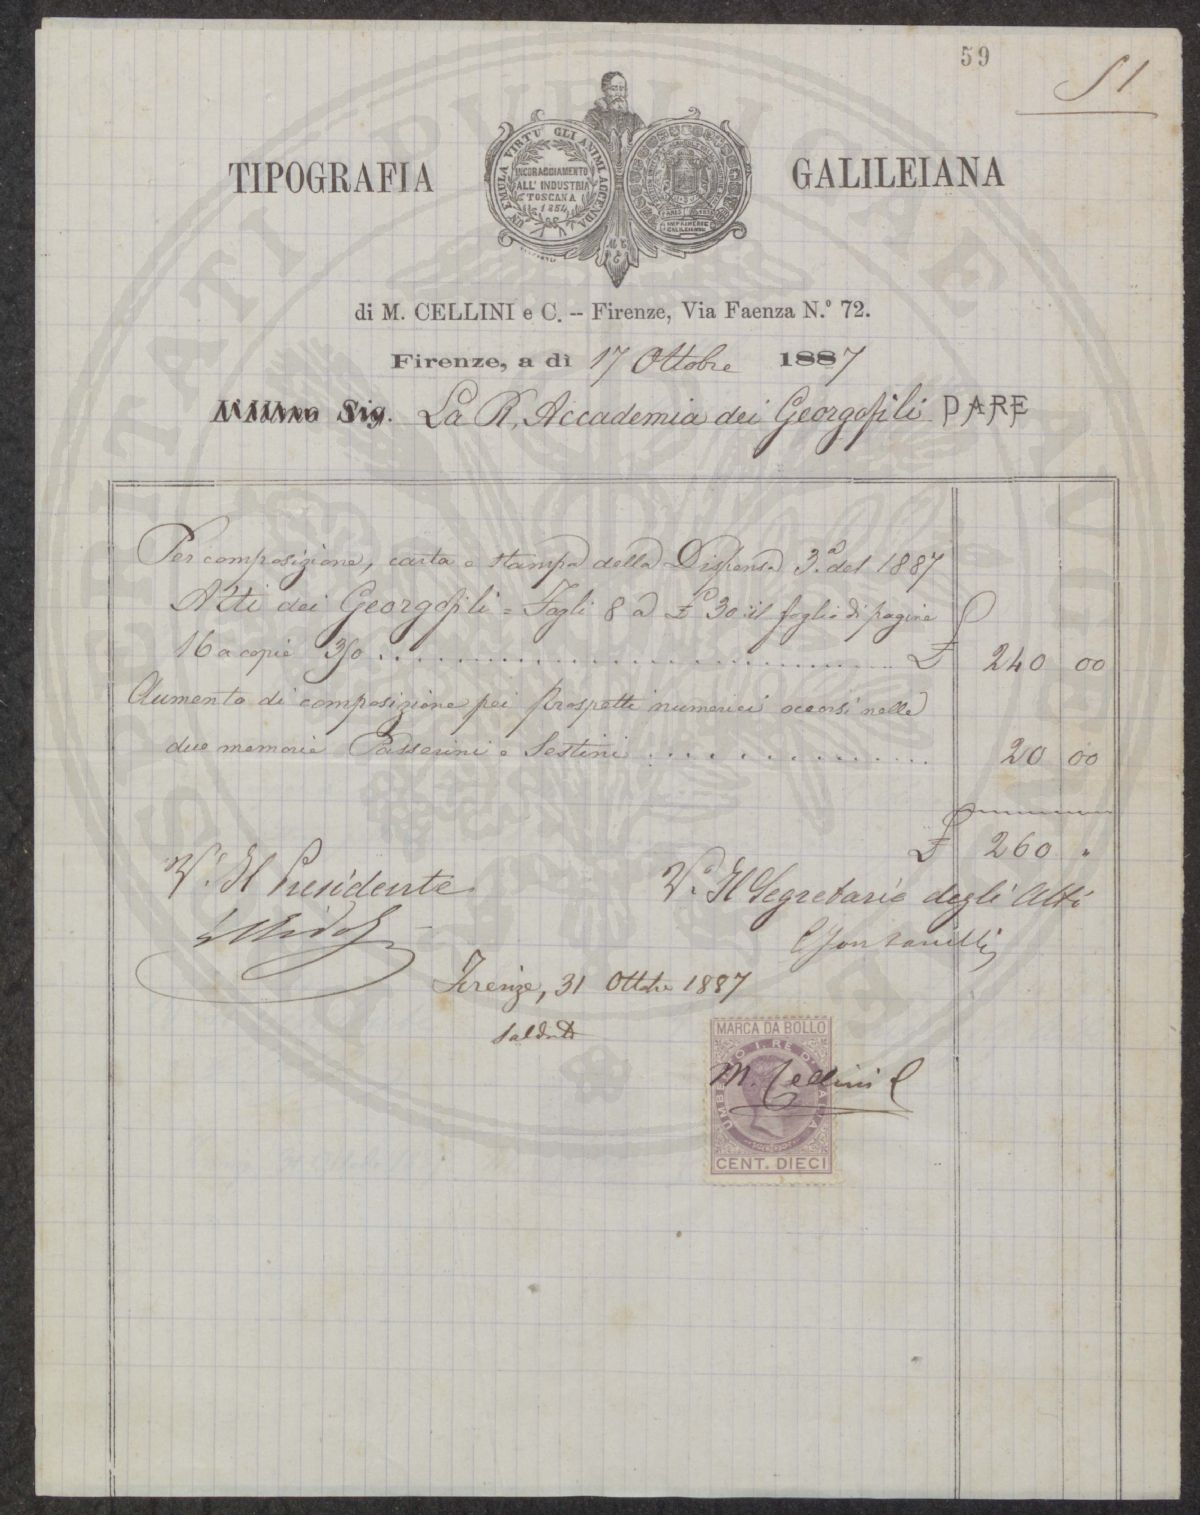 59
51
TIPOGRAFIA GALILEIANA
UN EMULA VIRTU' GLI ANIMI ACCENDA
INCORAGGIAMENTO
ALL' INDUSTRIA
TOSCANA
1854
IMPRIMERIE
GALILEIANE
di M. CELLINI e C. – Firenze, Via Faenza N.º 72.
Firenze, a dì 17 Ottobre 1887
Sig. La R. Accademia dei Georgofili DARE
Per composizione, carta e stampa della Dispensa 3.ª del 1887
Atti dei Georgofili = Fogli 8 a £ 30 il foglio di pagine
16 a copie 350 ........ £ 240 00
Aumento di composizione pei Prospetti numerici occorsi nelle
due memorie Passerini e Sestini ........ 20 00
£ 260 "
V.º Il Presidente
V.º Il Segretario degli Atti
Firenze, 31 Ottobre 1887
Saldato
MARCA DA BOLLO
UMBERTO I. RE D'ITALIA
M. Cellini C
CENT. DIECI